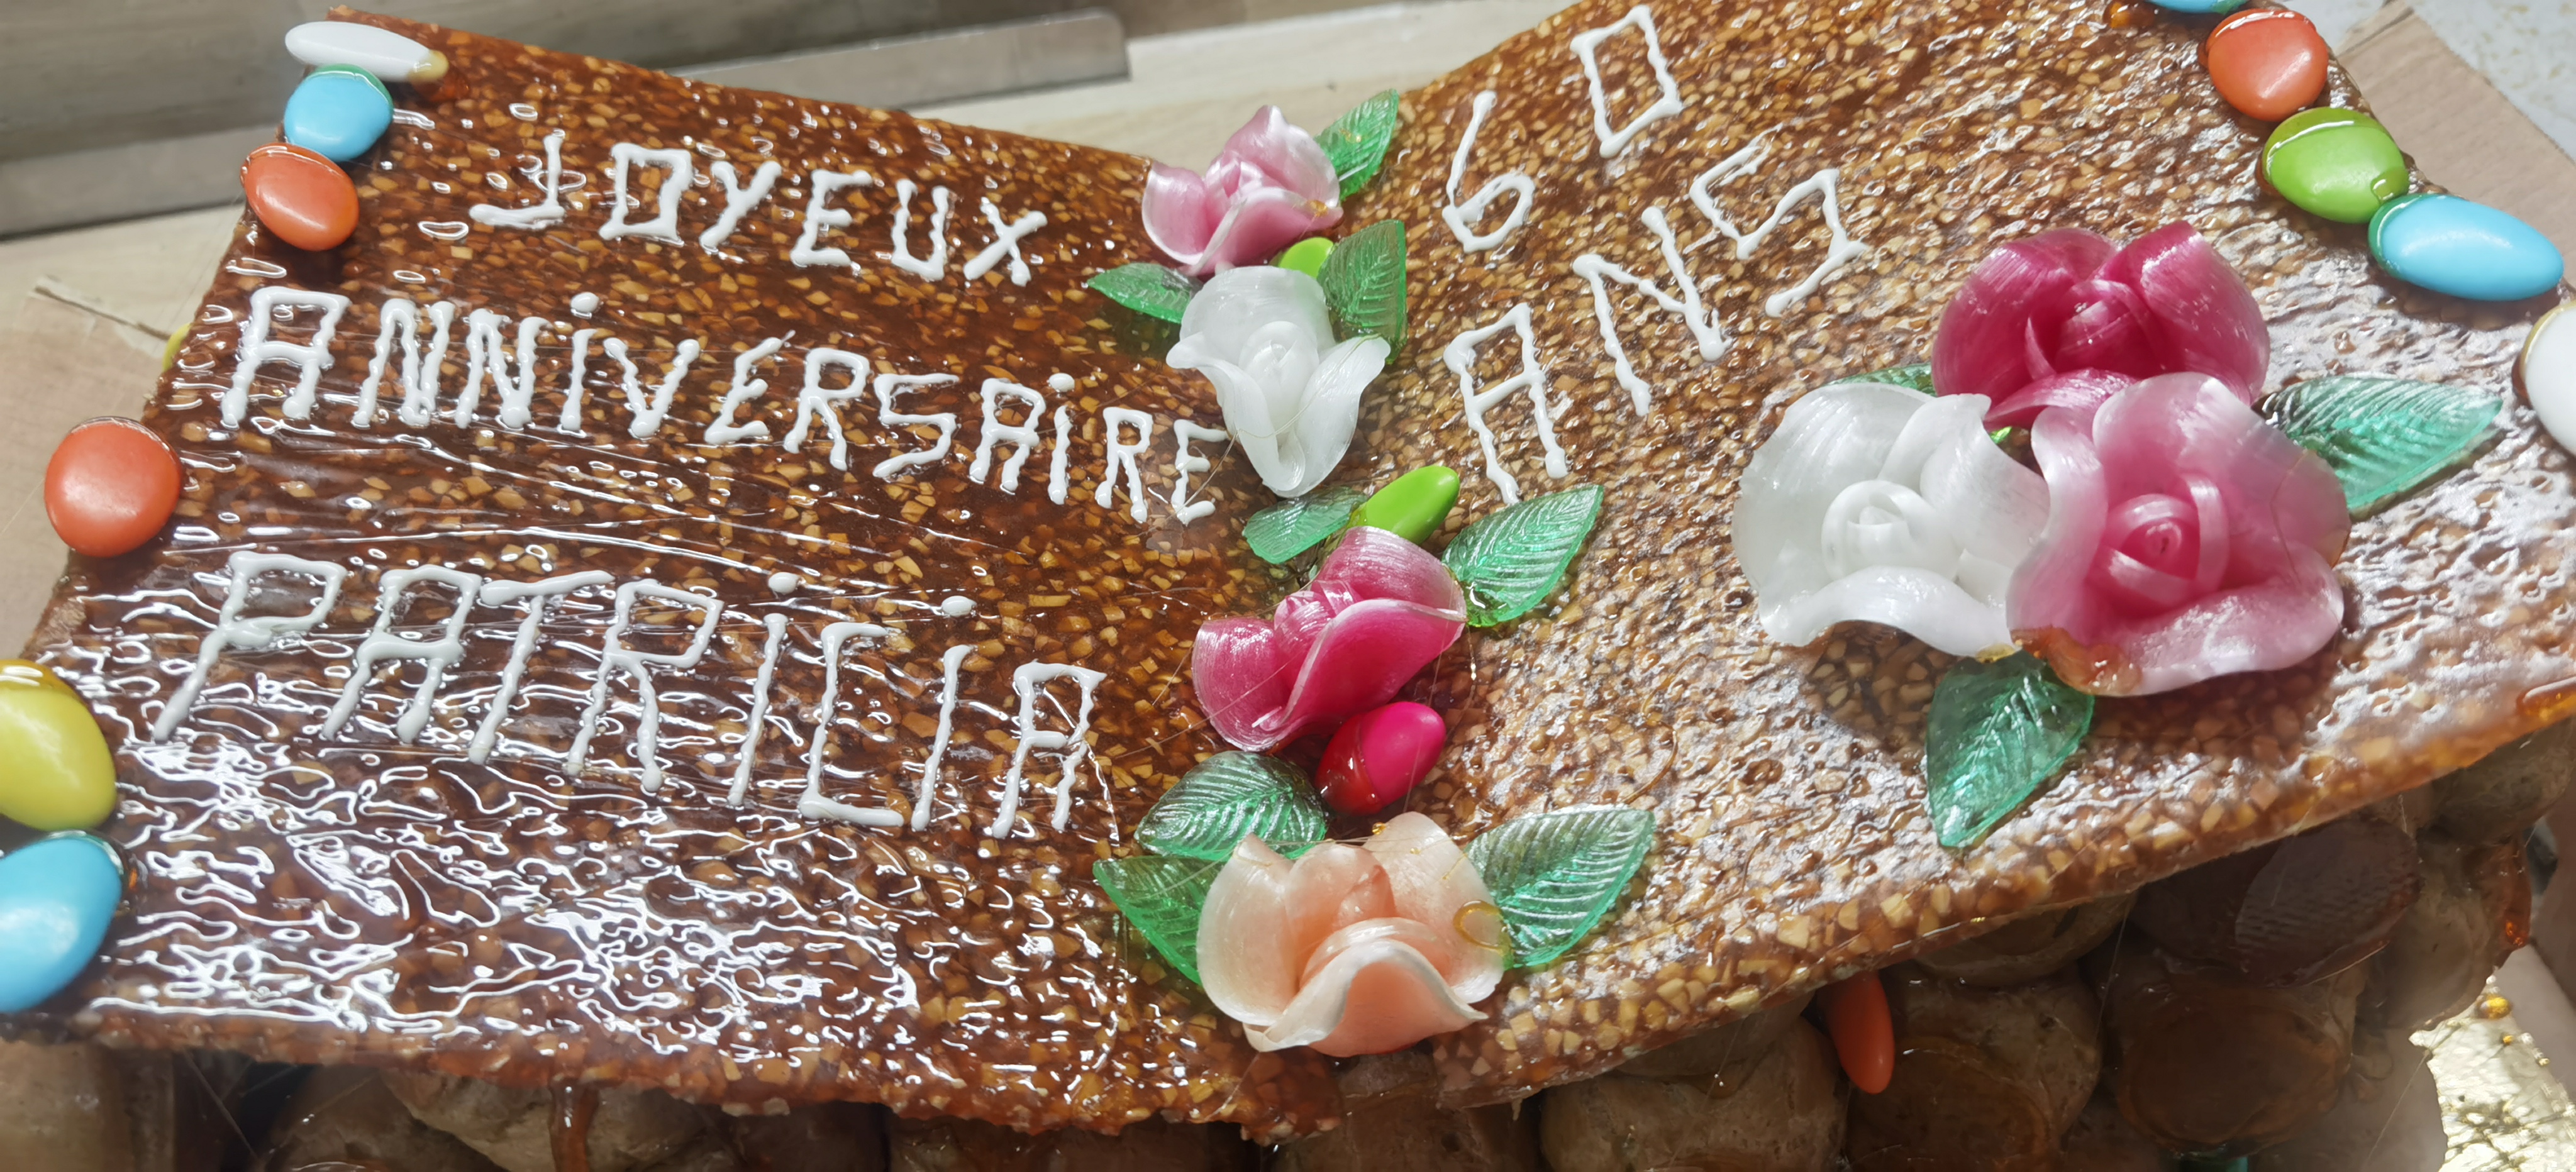 JOYEUX
ANNiVERSAiRE
PATRiCiA
60
ANS